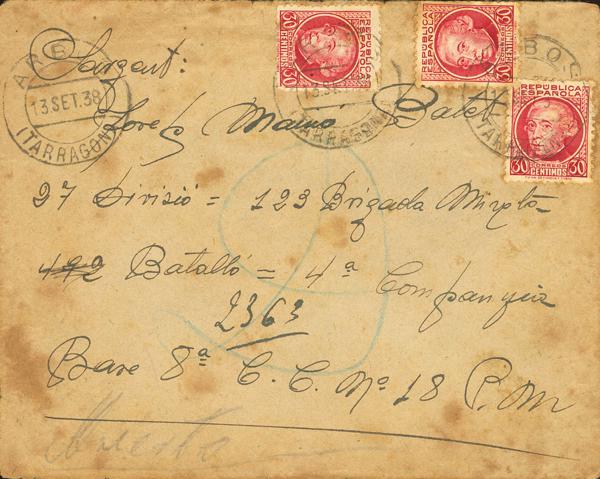 Sargent:
ARBOS
13 SET. 38
(TARRAGONA)
30 CENTIMOS REPUBLICA ESPAÑOLA
REPUBLICA ESPAÑOLA 30 CENTIMOS
REPUBLICA ESPAÑOLA
30 CORREOS 30
CENTIMOS
13 SET. 38
TARRAGONA
BOS
Batet
27 Divisió = 123 Brigada Mixta
492 Batalló = 4ª Companyia
2363
Base 8ª C. C. Nº 18 P.M